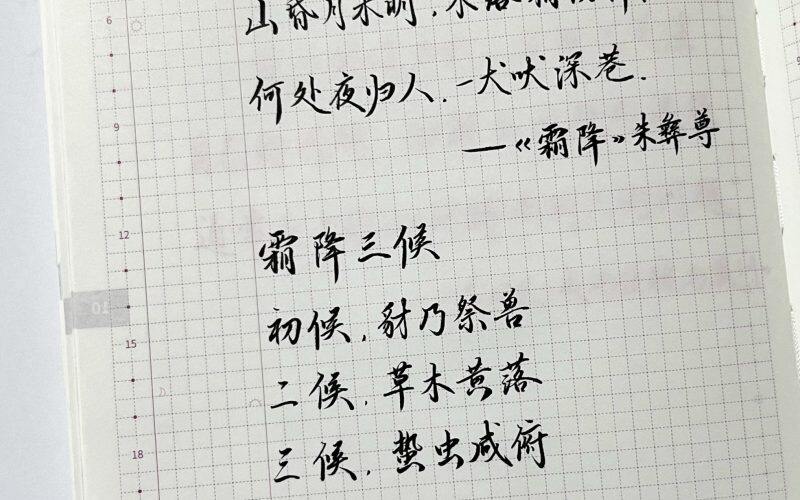 山昏月未明,木落
何处夜归人,一犬吠深巷.
—《霜降》朱彝尊
霜降三候
初候,豺乃祭兽
二候,草木黄落
三候,蛰虫咸俯
6
9
12
01
15
18